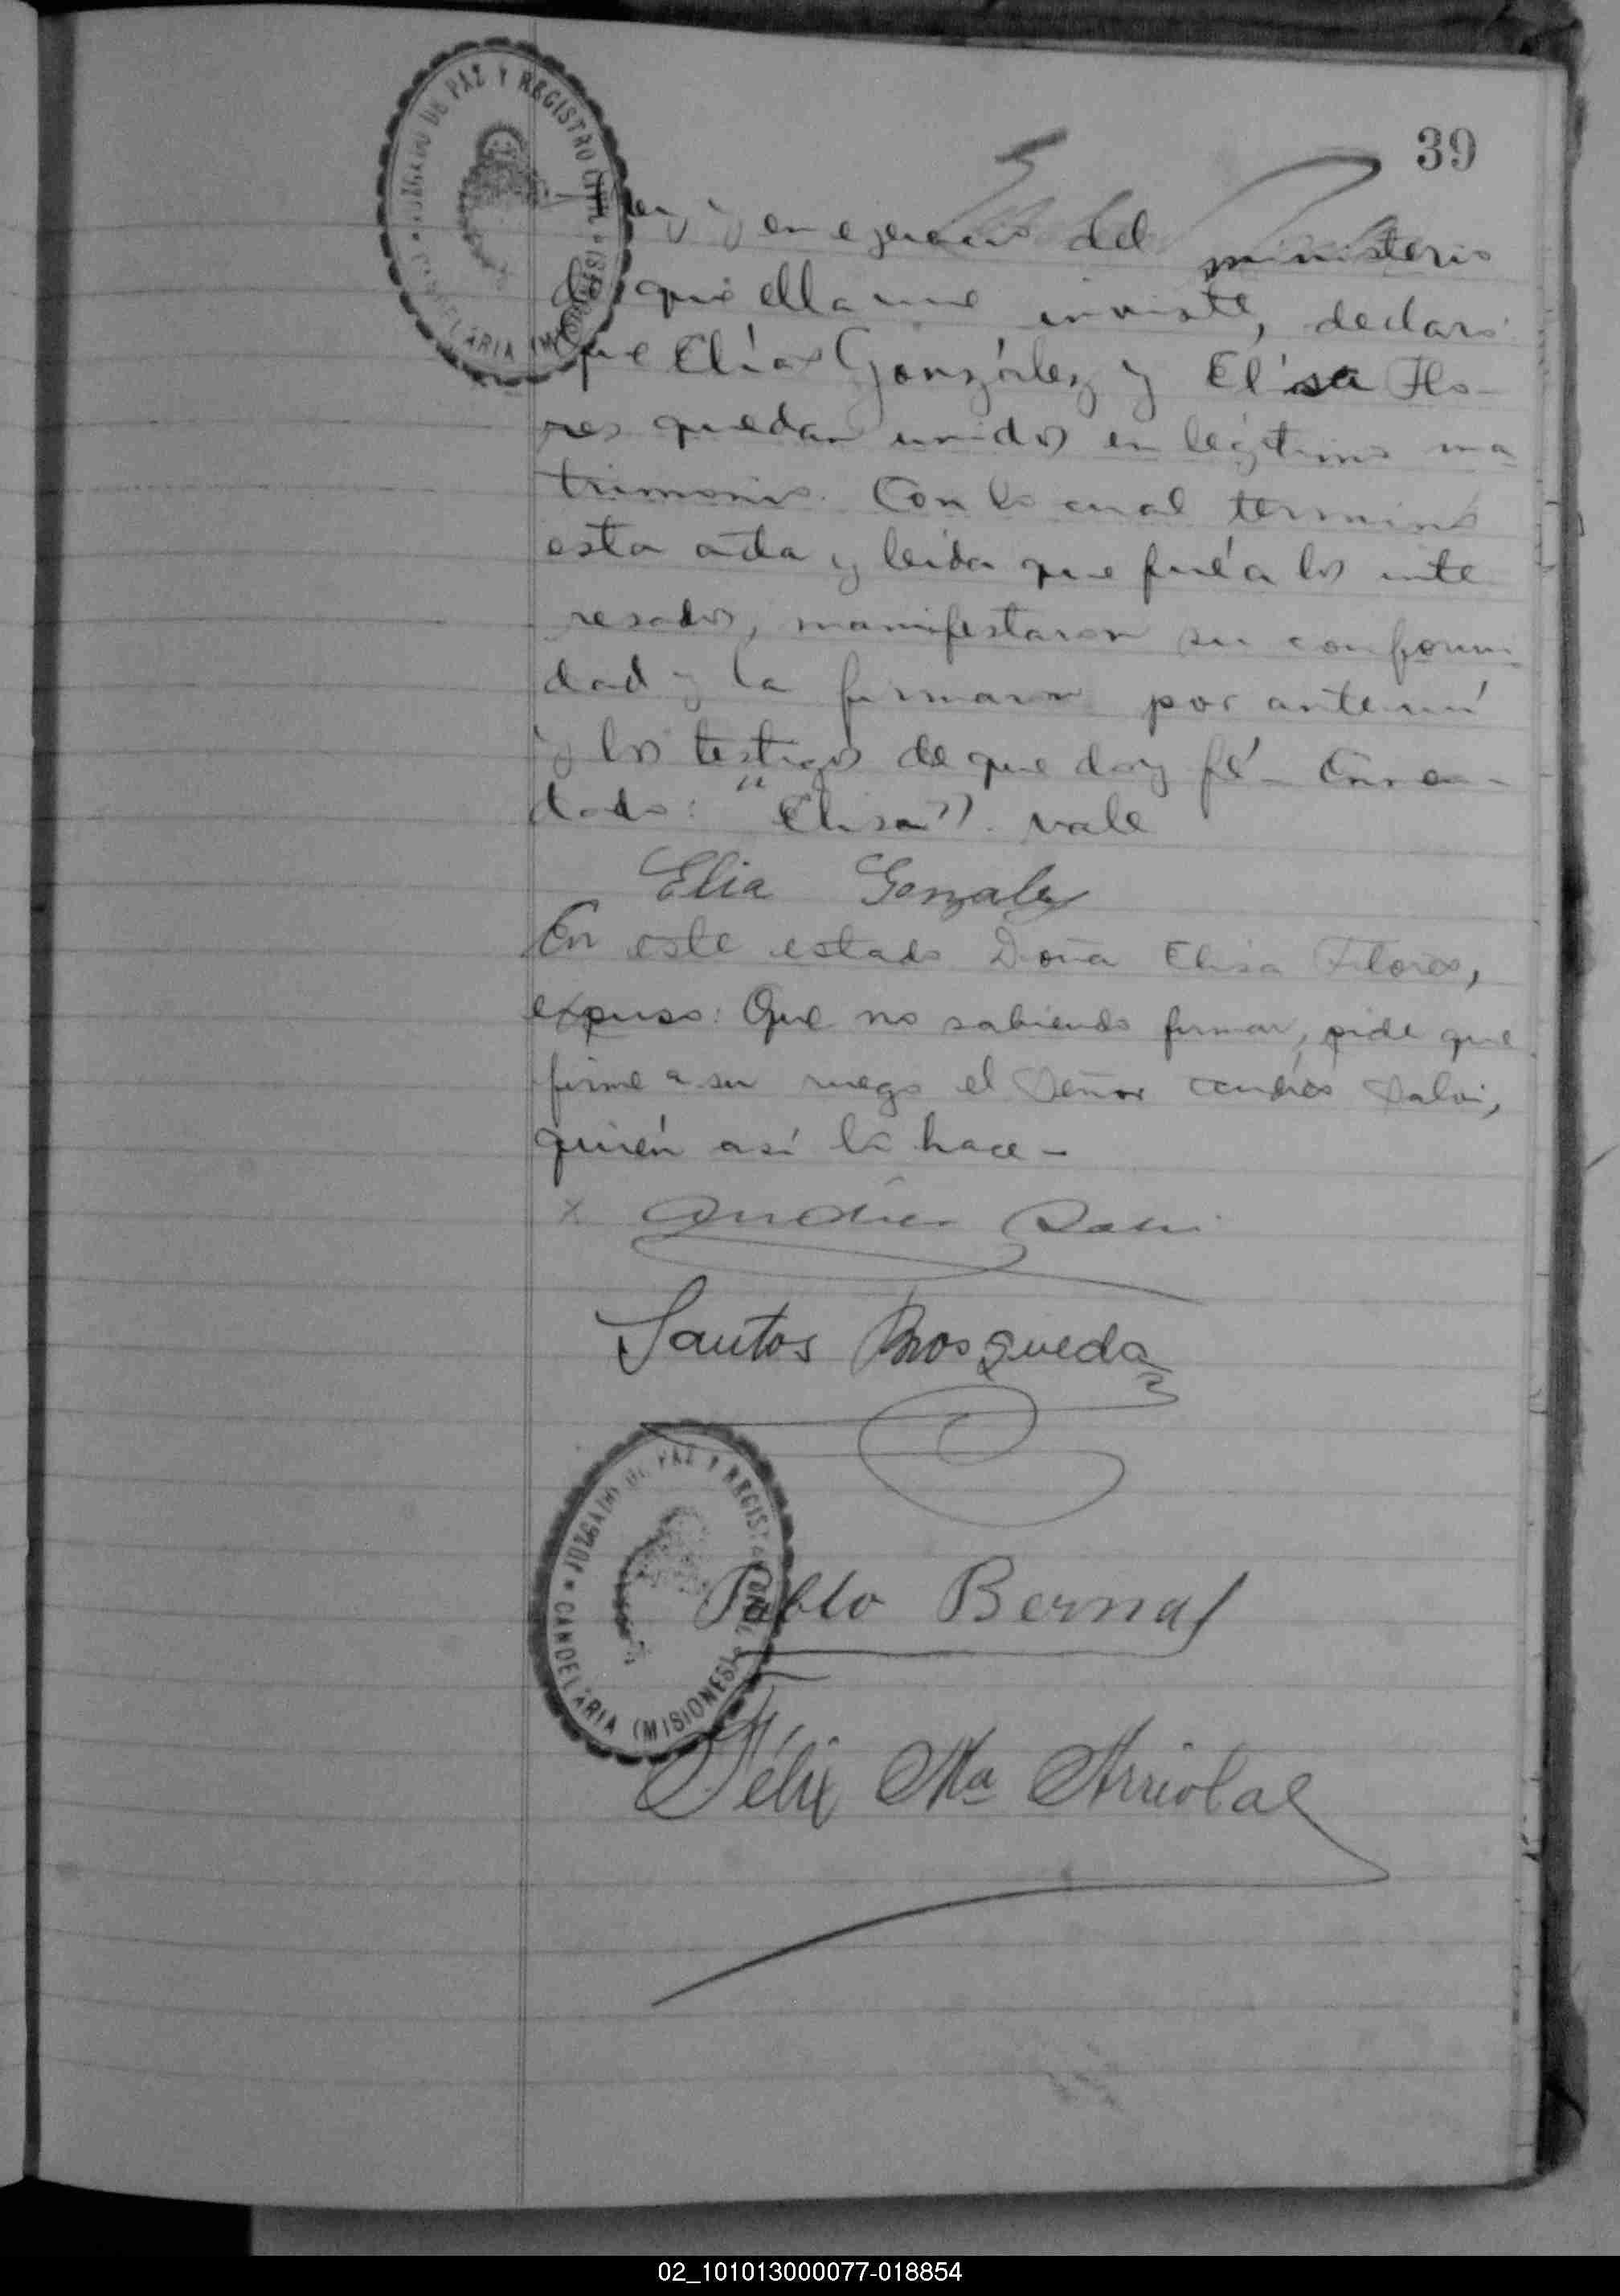 39
JUZGADO DE PAZ Y REGISTRO CIVIL * CANDELARIA (MISIONES) *
Ley, y en ejercicio del ministerio
de que ella me inviste, declaro
que Elías González y Elisa Flo-
res quedan unidos en legítimo ma
trimonio. Con lo cual terminó
esta acta y leida que fué a los inte
resados, manifestaron su conformi
dad y la firmaron por ante mí
y los testigos de que doy fé- Enmen-
dado: "Elisa". vale
Elia Gonzalez
En este estado Doña Elisa Flores,
expuso: Que no sabiendo firmar, pide que
firme a su ruego el Señor Andrés Salvi,
quién así lo hace-
x Andrés Salvi
Santos Mosqueda
JUZGADO DE PAZ Y REGISTRO CIVIL * CANDELARIA (MISIONES) *
Pablo Bernal
Félix Ma Arriola
02_101013000077-018854